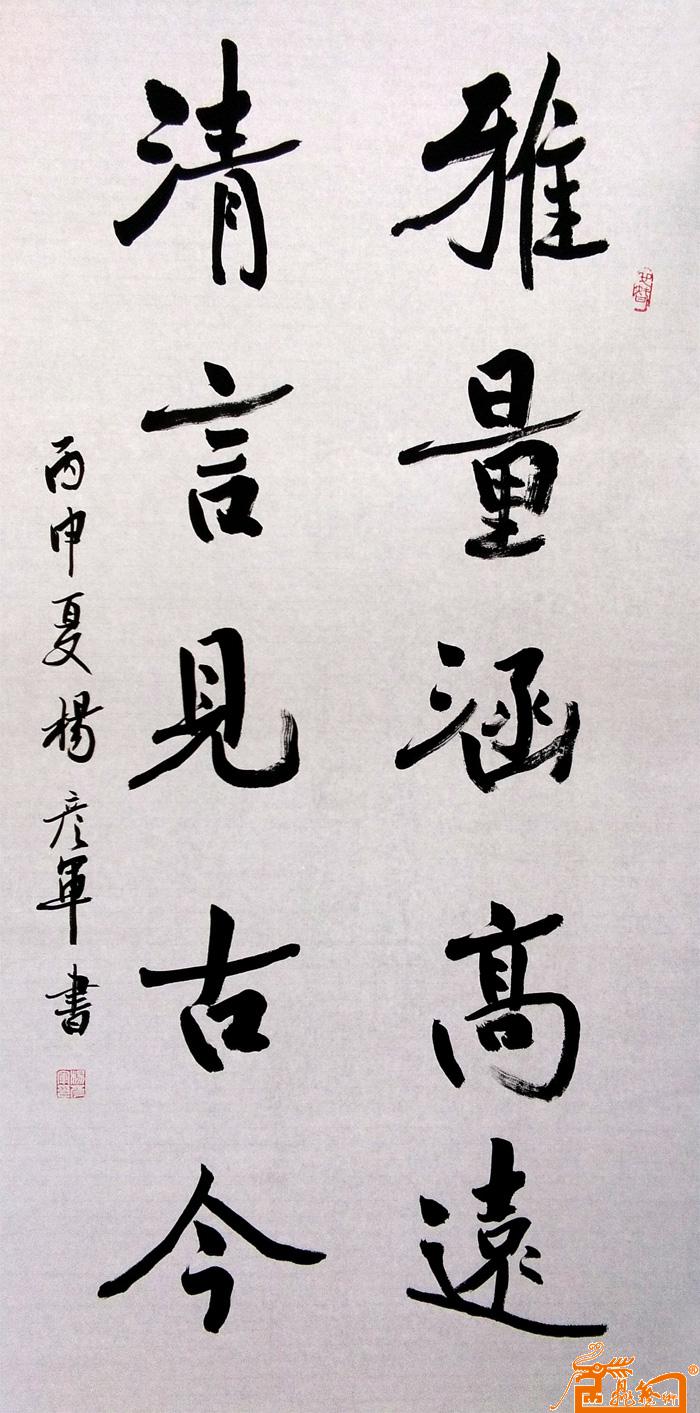 雅量涵高遠
清言見古今
丙申夏楊彦軍書